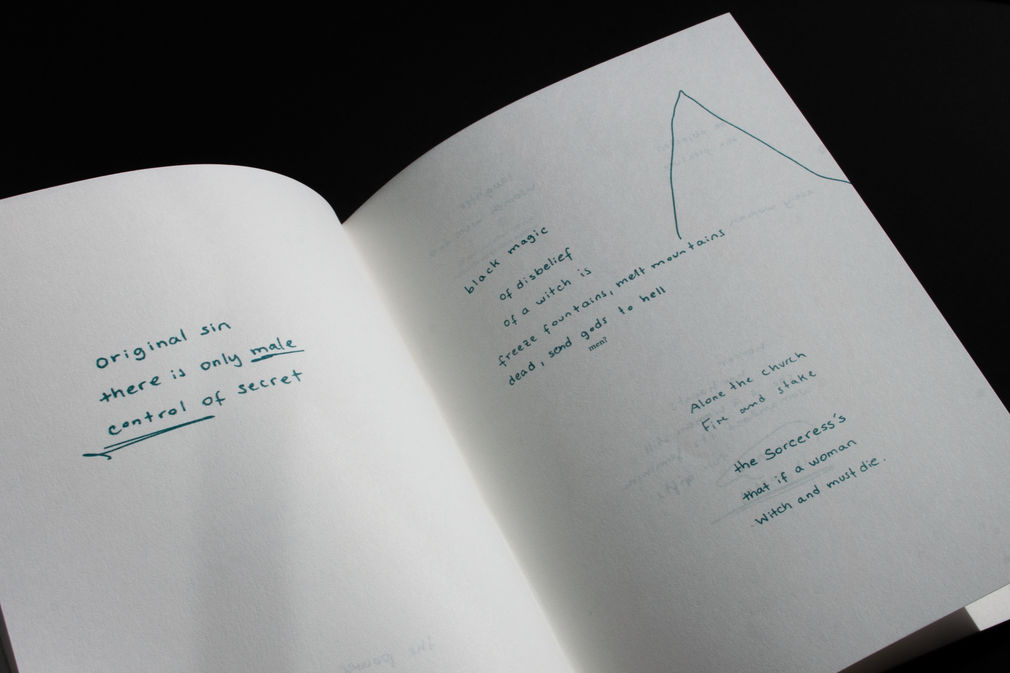 original sin
there is only male
control of secret
black magic
of disbelief
of a witch is
freeze fountains, melt mountains
dead, send gods to hell
men?
Alone the church
Fire and stake
the Sorceress's
that if a woman
witch and must die.
the power